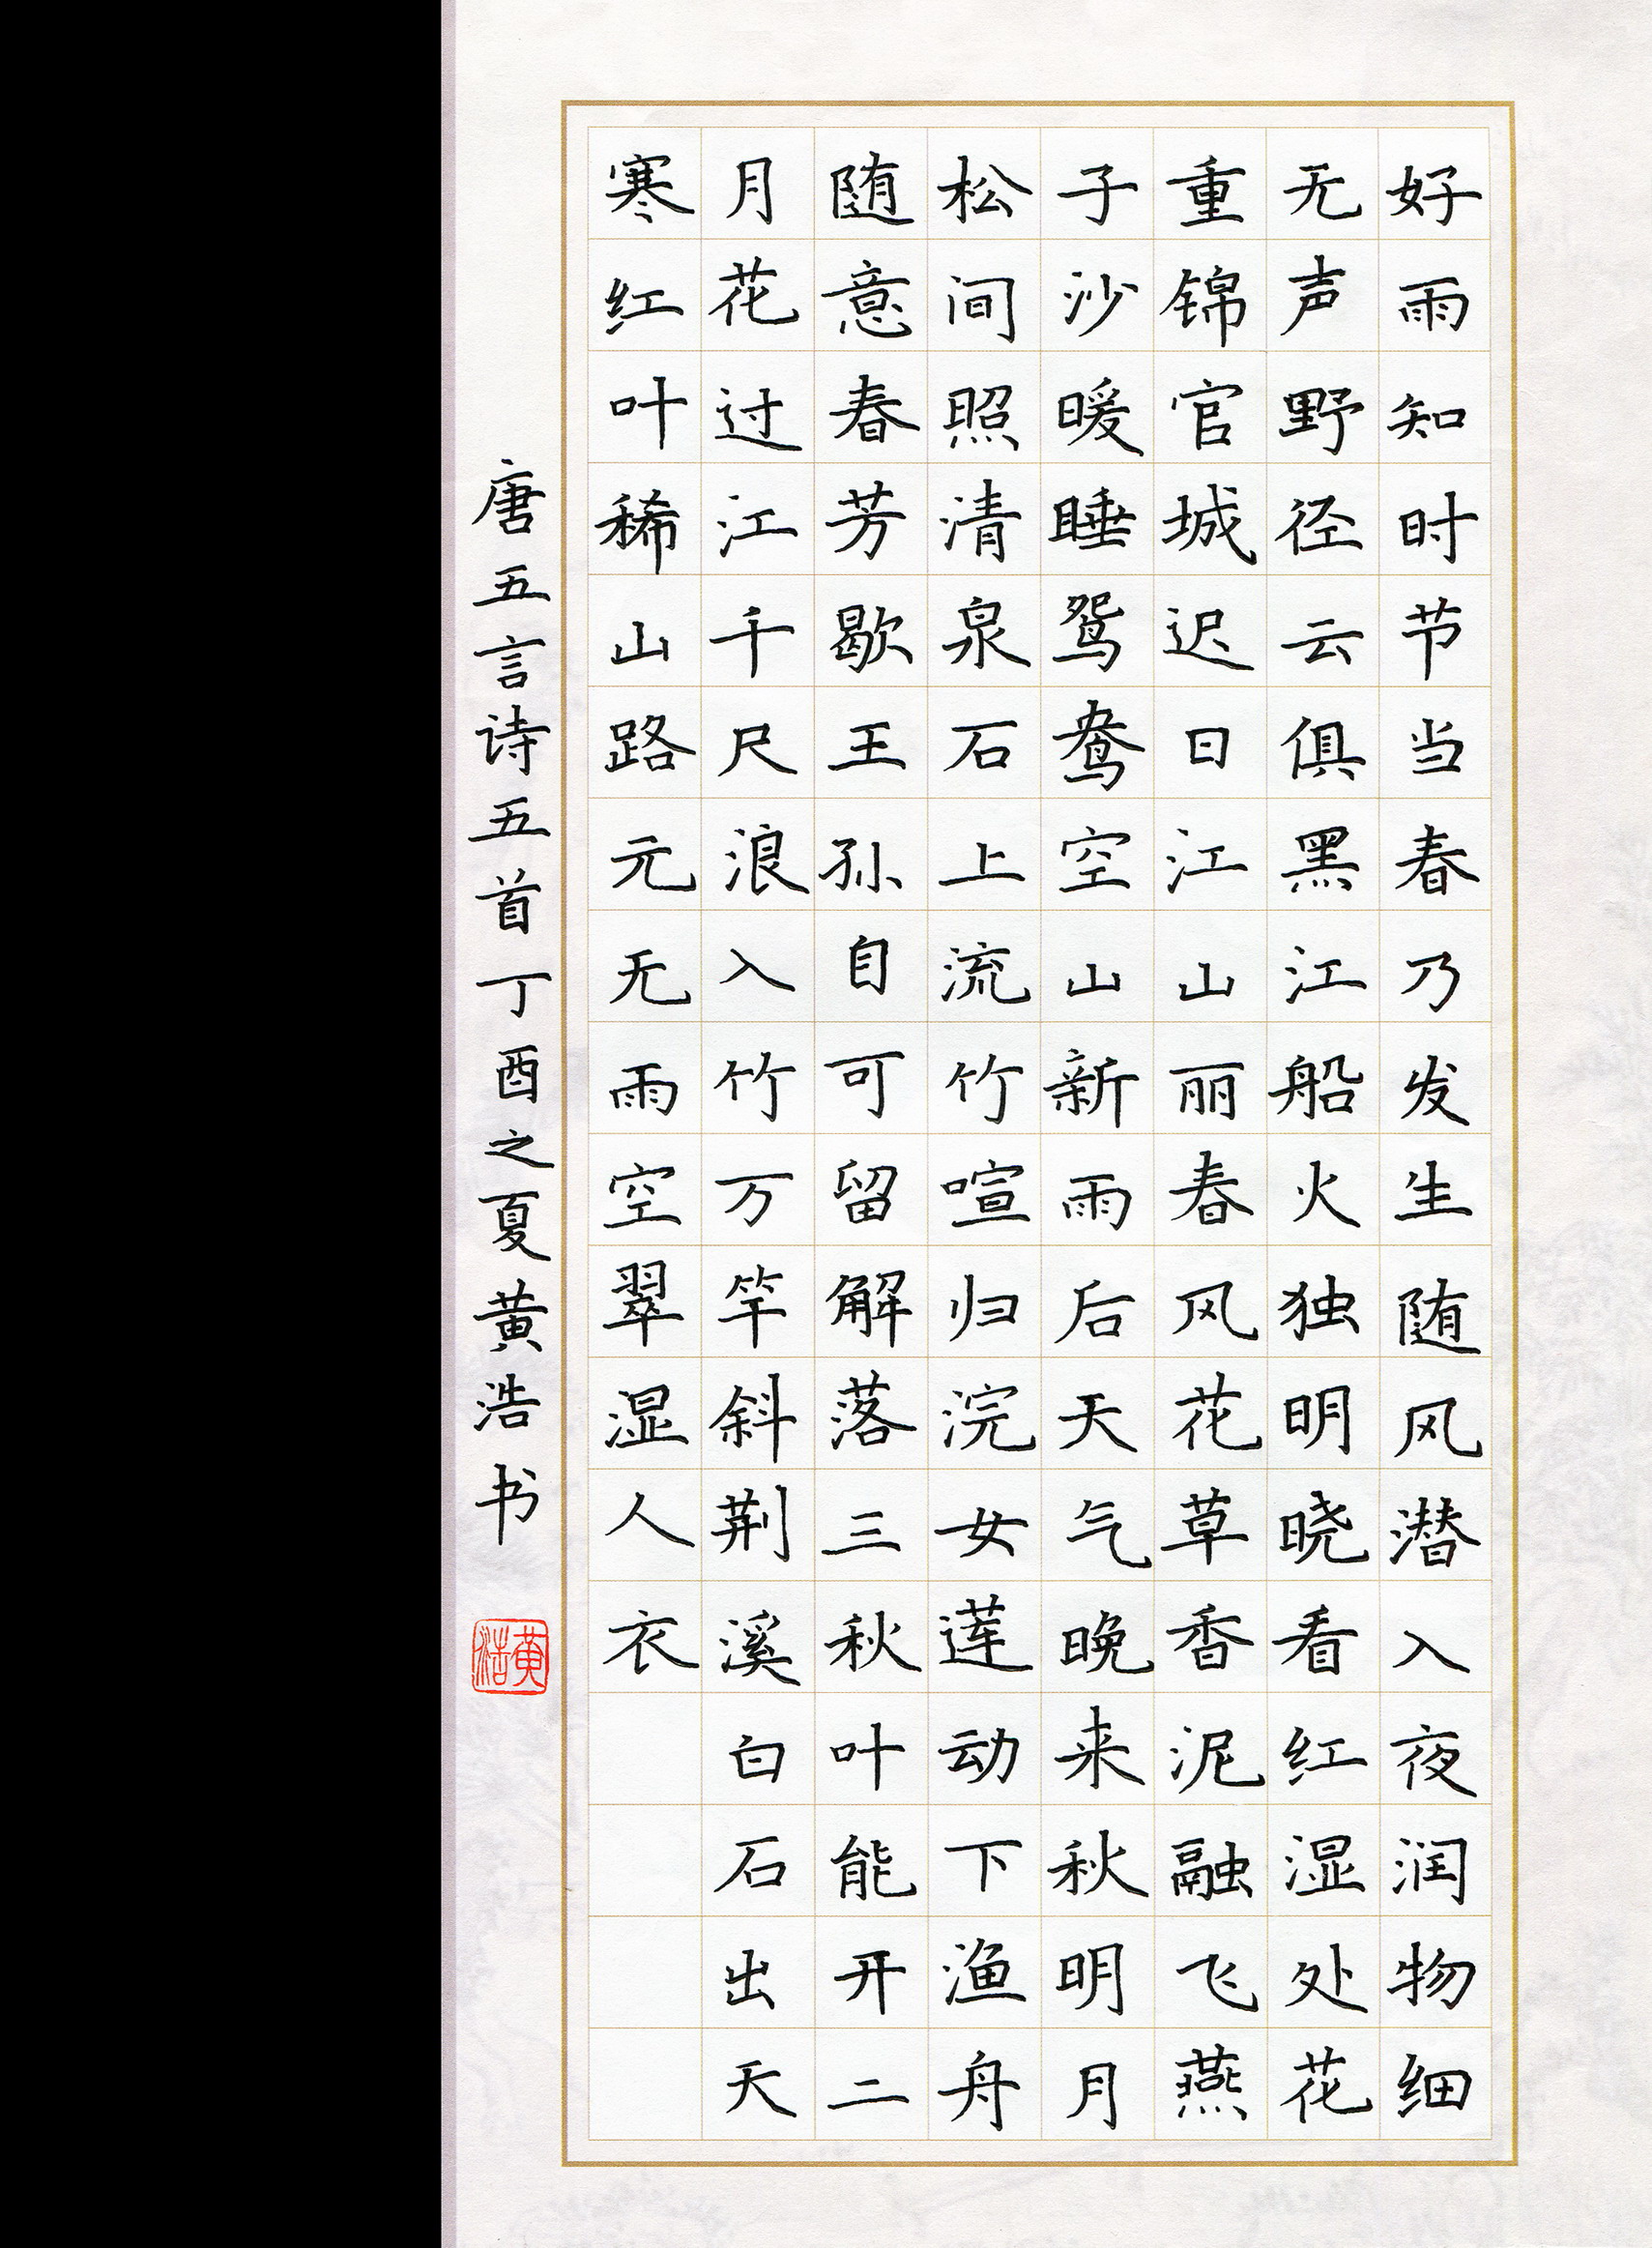 好雨知时节当春乃发生随风潜入夜润物细
无声野径云俱黑江船火独明晓看红湿处花
重锦官城迟日江山丽春风花草香泥融飞燕
子沙暖睡鸳鸯空山新雨后天气晚来秋明月
松间照清泉石上流竹喧归浣女莲动下渔舟
随意春芳歇王孙自可留解落三秋叶能开二
月花过江千尺浪入竹万竿斜荆溪白石出天
寒红叶稀山路元无雨空翠湿人衣
唐五言诗五首丁酉之夏黄浩书
黄浩